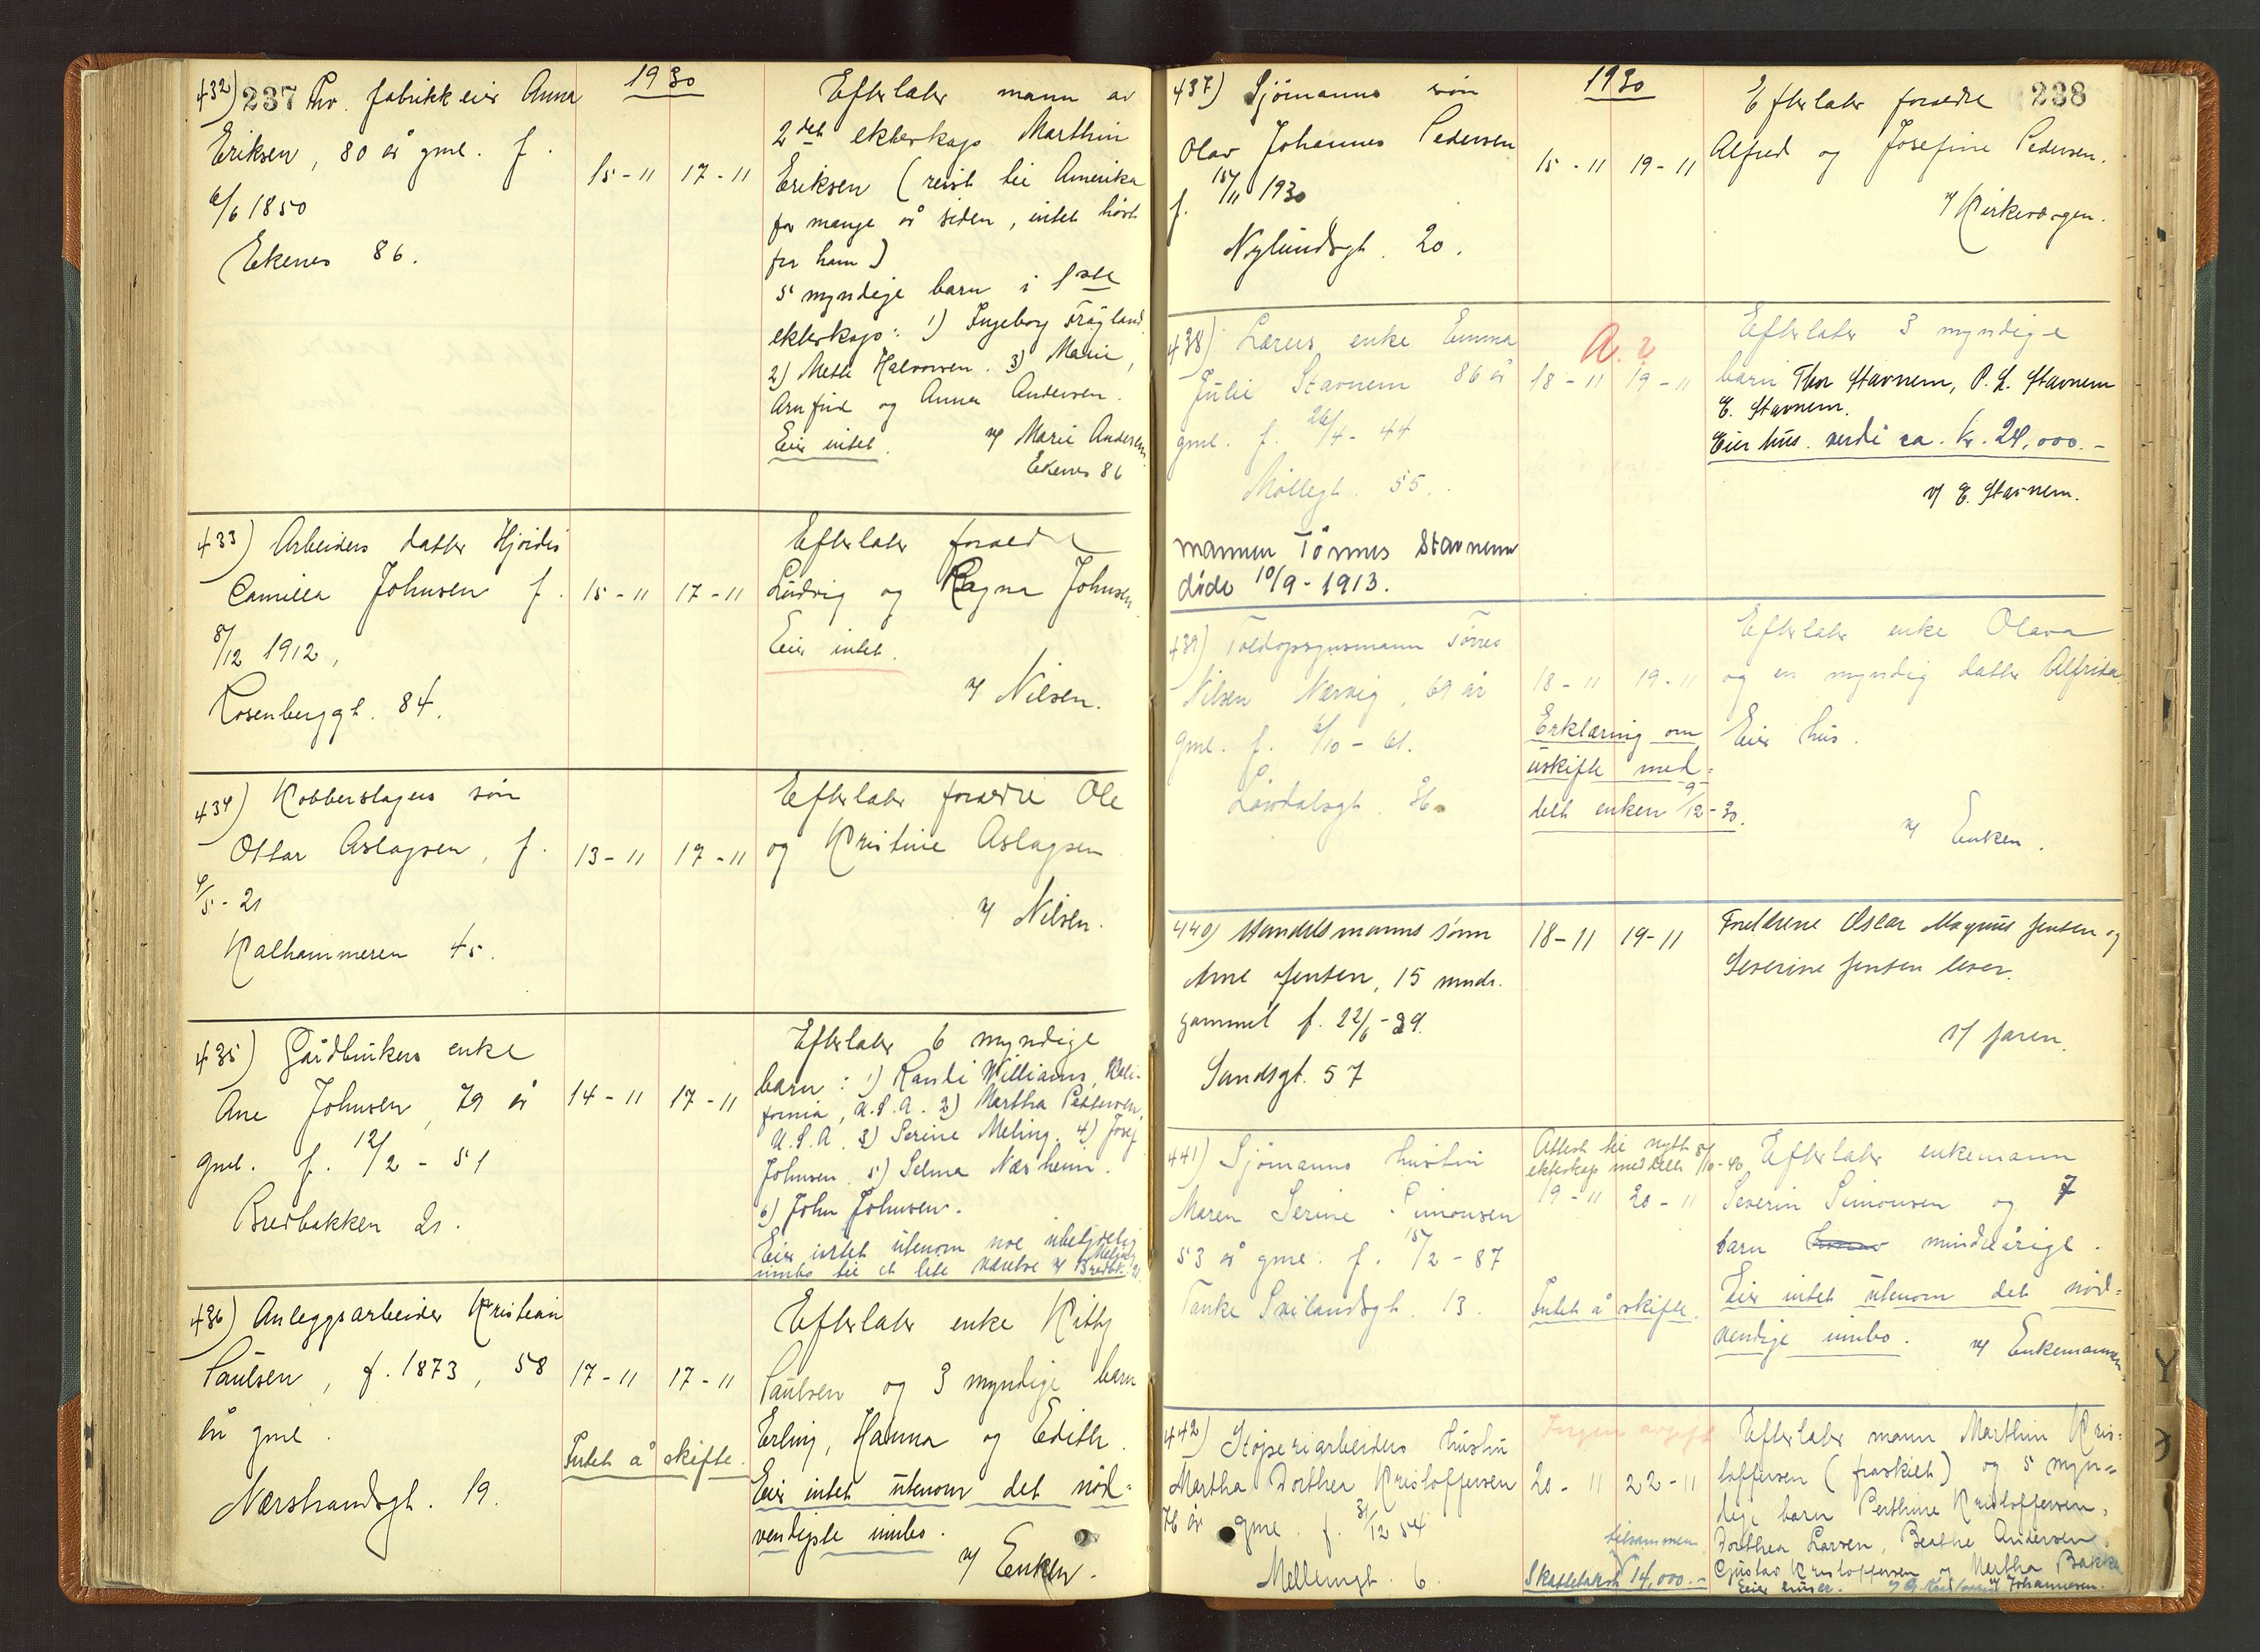 237
432) Frv. fabrikkeier Anna
Eriksen, 80 år gml. f.
6/6 1850
Ekenes 86.
1930
15-11 17-11
Efterlater mann av
2det ekteskap Marthin
Eriksen (reist til Amerika
for mange år siden, intet hört
fra ham)
5 myndige barn i 1ste
ekteskap: 1) Ingeborg Fragland
2) Mette Halvorsen. 3) Marie,
Arnfind og Anna Andersen.
Eier intet.
v/ Marie Andersen
Ekenes 86
433) Arbeiders datter Hjördis
Camilla Johnsen f.
8/12 1912,
Rosenberggt. 84.
15-11 17-11
Efterlater foraeldre
Ludvig og Ragna Johnsen
Eier intet.
v/ Nilsen.
434) Kobberslagers sön
Ottar Aslagsen, f.
4/5-21
Kalhammeren 45.
13-11 17-11
Efterlater foraeldre Ole
og Kristine Aslagsen
v/ Nilsen.
435) Gårdbrukers enke
Ane Johnsen, 79 år
gml. f. 12/2-51
Bredbakken 21.
14-11 17-11
Efterlater 6 myndige
barn: 1) Ranti Williams, Kali-
fornia, U.S.A. 2) Martha Pettersen,
U.S.A. 3) Serine Meling. 4) Josef
Johnsen. 5) Selma Næsheim.
6) John Johnsen.
Eier intet utenom noe ubetydelig
innbo til et lite værelse v/ Meling Bredbk. 21
436) Anleggsarbeider Kristian
Paulsen, f. 1873, 58
år gml.
Nærstrandsgt. 19.
17-11 17-11
Intet å skifte.
Efterlater enke Kitty
Paulsen og 3 myndige barn
Erling, Hanna og Edith.
Eier intet utenom det nöd-
vendigste innbo.
v/ Enken.
238
437) Sjömanns sön
Olav Johannes Pedersen
f. 15/11 1930
Nylundsgt. 20.
1930
15-11 19-11
Efterlater foraeldre
Alfred og Josefine Pedersen.
v/ Kirkevergen.
438) Lærers enke Emma
Julie Stavnem 86 år
gml. f. 26/4-44
Möllegt. 55.
mannen Tönnes Stavnem
döde 10/9-1913.
18-11 19-11
Efterlater 3 myndige
barn Thor Stavnem, P. L. Stavnem
E. Stavnem.
Eier hus. verdi ca. kr. 24,000.-
v/ E. Stavnem.
439) Toldopsynsmann Törres
Nilsen Nærvig, 69 år
gml. f. 6/10-61.
Lövdalsgt.
18-11 19-11
Erklæring om
uskifte med-
delt enken 9/12-30.
Efterlater enke Olava
og en myndig datter Alfrida
Eier hus.
v/ Enken.
440) Handelsmanns sönn
Arne Jensen, 15 mndr.
gammel f. 22/6-29.
Sandsgt. 57
18-11 19-11
Foreldrene Oscar Magnus Jensen og
Severine Jensen lever.
v/ faren.
441) Sjömanns hustru
Maren Serine Simonsen
53 år gml. f. 15/2-87
Tanke Svilandsgt. 13.
Attest til nytt
ekteskap meddelt 8/10-40
19-11 20-11
Intet å skifte.
Efterlater enkemann
Severin Simonsen og 7
barn mindreårige.
Eier intet utenom det nöd-
vendige innbo.
v/ Enkemannen
442) Stöperiarbeiders hustru
Martha Dorthea Kristoffersen
76 år gml. f. 31/12 54
Mellemgt. 6.
Ingen avgift
20-11 22-11
tilsammen
Skattetakst 14,000.-
Efterlater mann Marthin Kris-
toffersen (fraskilt) og 5 myn-
dige barn Perthine Kristoffersen,
Dorthea Larsen, Beathe Andersen,
Gustav Kristoffersen og Martha Bakke
Eier huser. Johannesen.